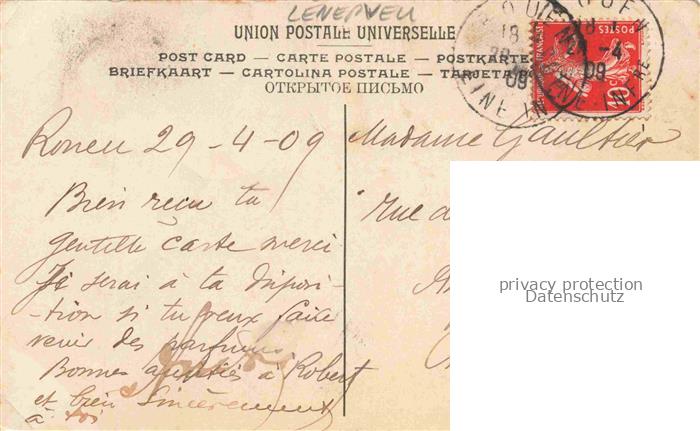 LENEPVEU
UNION POSTALE UNIVERSELLE
POST CARD — CARTE POSTALE — POSTKARTE
BRIEFKAART — CARTOLINA POSTALE — TARJETA
ОТКРЫТОЕ ПИСЬМО
POSTES
10c
ROUEN
18
29-4
09
INE INFRE
Rouen 29-4-09
Bien reçu ta
gentille carte merci
Je serai à ta disposi-
-tion si tu veux faire
venir des parfums
Bonnes amitiés à Robert
et bien sincèrement
à toi
Madame Gaultier
rue d
privacy protection
Datenschutz